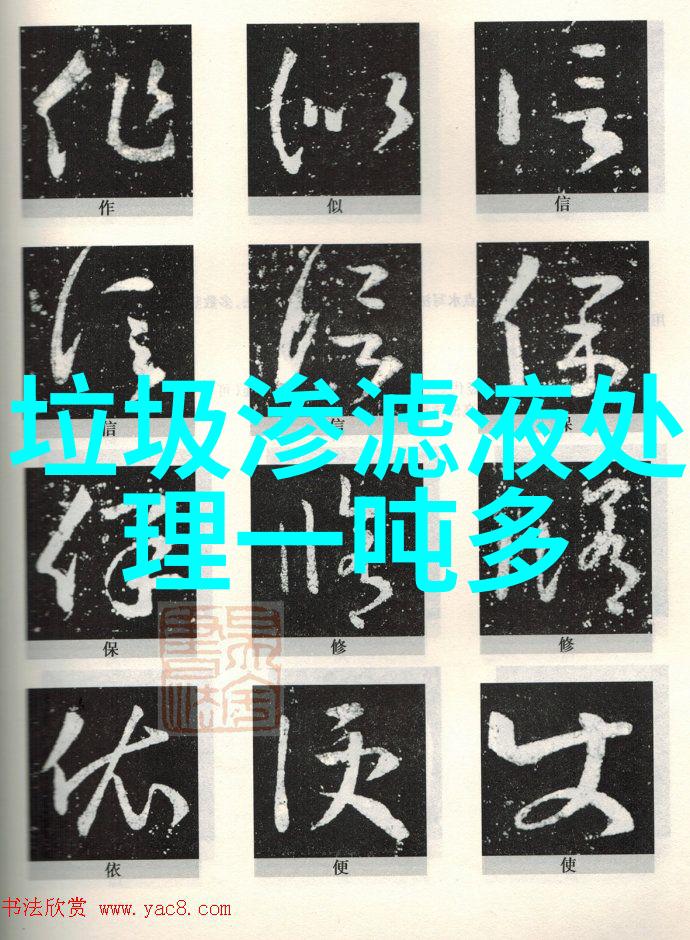 作 似 信
信 信 保
垃圾渗滤液处
理一吨多
保 修 修
依 便 使
书法欣赏 www.yac8.com